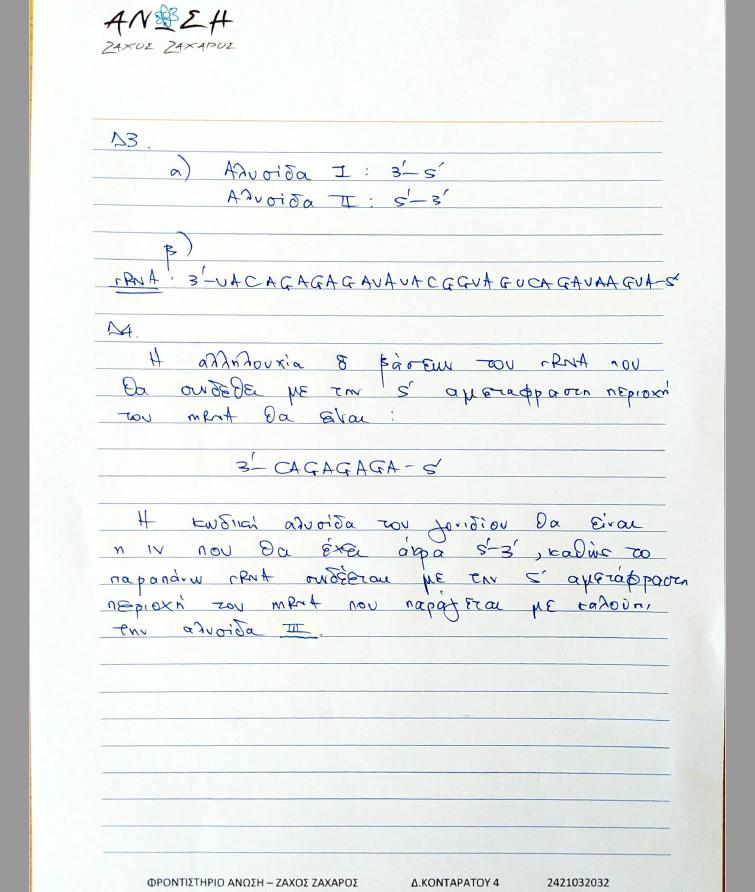 ΑΝΩΣΗ
ΖΑΧΟΣ ΖΑΧΑΡΟΣ
Δ3.
α) Αλυσίδα I : 3΄-5΄
Αλυσίδα II : 5΄-3΄
β)
rRNA : 3΄-UACAGAGAGAUAUACGGUAGUCAGAUAAGUA-5΄
Δ4.
Η αλληλουχία 8 βάσεων του rRNA που
θα συνδεθεί με την 5΄ αμετάφραστη περιοχή
του mRNA θα είναι :
3΄- CAGAGAGA - 5΄
Η κωδική αλυσίδα του γονιδίου θα είναι
η IV που θα έχει άκρα 5΄-3΄, καθώς το
παραπάνω rRNA συνδέεται με την 5΄ αμετάφραστη
περιοχή του mRNA που παράγεται με καλούπι
την αλυσίδα III.
ΦΡΟΝΤΙΣΤΗΡΙΟ ΑΝΩΣΗ – ΖΑΧΟΣ ΖΑΧΑΡΟΣ Δ.ΚΟΝΤΑΡΑΤΟΥ 4 2421032032